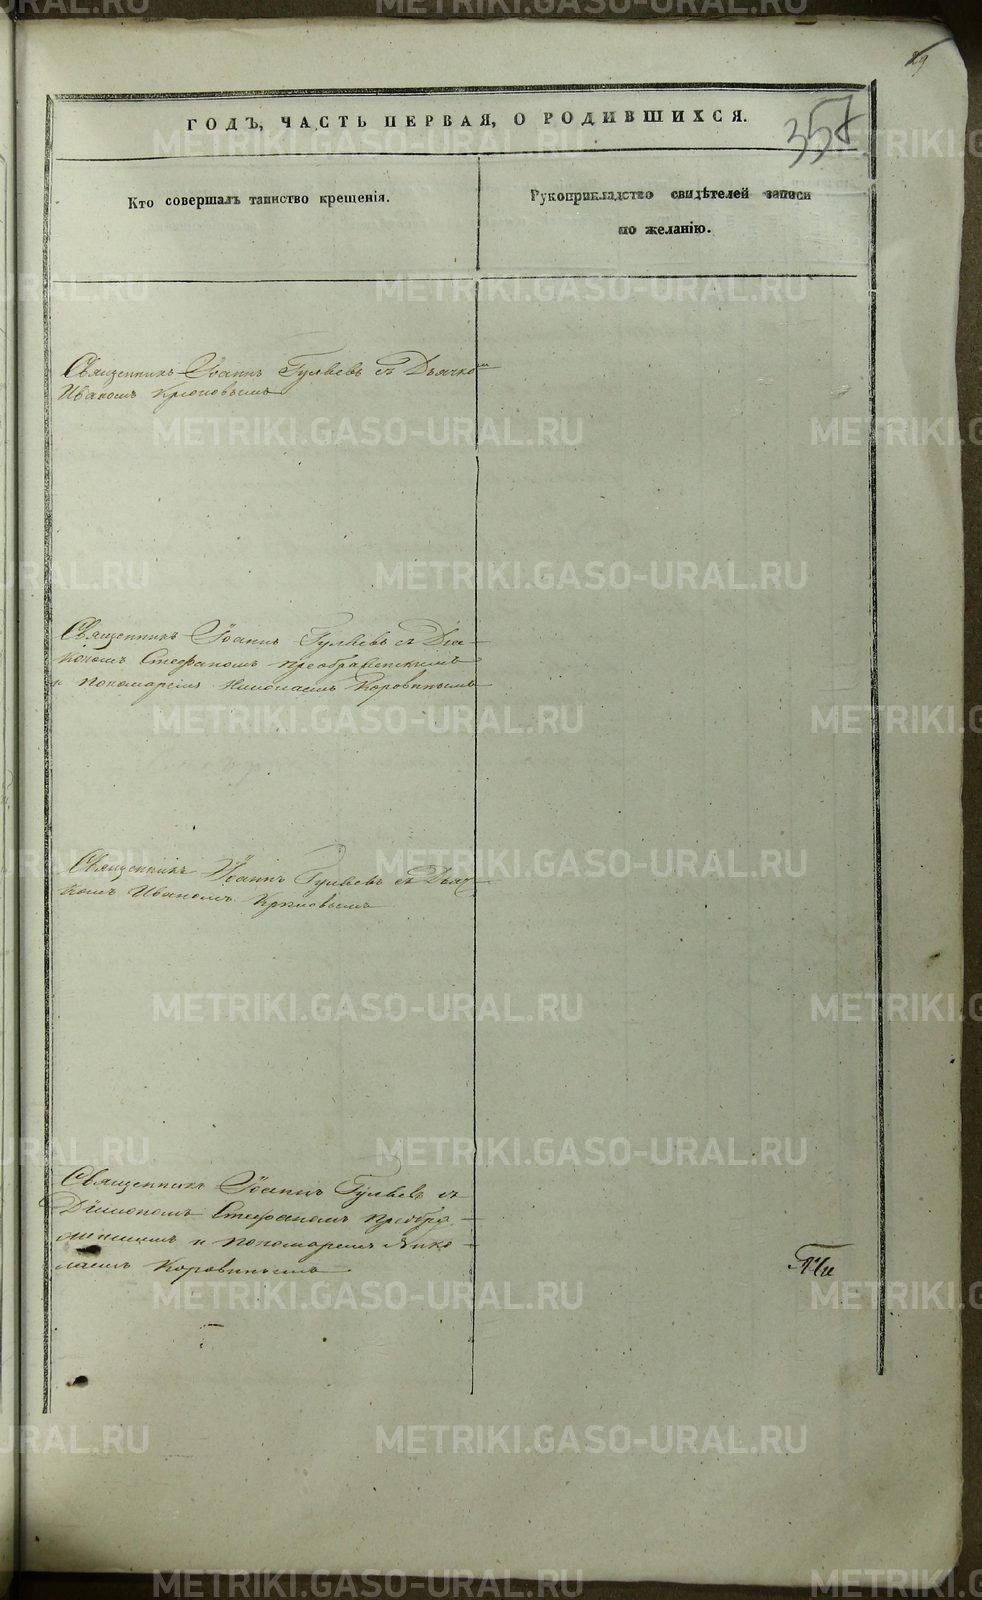 29
ГОДЪ, ЧАСТЬ ПЕРВАЯ, О РОДИВШИХСЯ.
357
Кто совершалъ таинство крещенія.
Рукоприкладство свидѣтелей записи
по желанію.
Священникъ Іоаннъ Гуляевъ съ Дьячкомъ
Иваномъ Крюковымъ
Священникъ Іоаннъ Гуляевъ съ Діа-
кономъ Стефаномъ Преображенскимъ
и Пономаремъ Николаемъ Коровинымъ
Священникъ Іоаннъ Гуляевъ съ Дьяч-
комъ Иваномъ Крюковымъ
Священникъ Іоаннъ Гуляевъ съ
Діакономъ Стефаномъ Преобра-
женскимъ и Пономаремъ Нико-
лаемъ Коровинымъ
METRIKI.GASO-URAL.RU